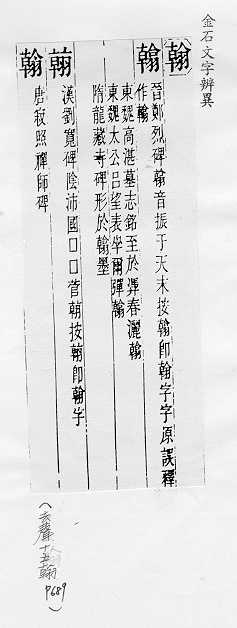 金石文字辨異
翰 晉鄭烈碑翰音振于天末按翰即翰字字原誤釋
作翰
翰 東魏高湛墓志銘至於渾春灑翰
東魏太公呂望表坐爾彈翰
隋龍藏寺碑形於翰墨
翰 漢劉寬碑陰沛國口口管朝按翰即翰字
翰 唐寂照禪師碑
(去聲十五翰
P689)